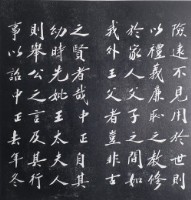 險遠不見用於世則
以禮義廉恥之教修
於家人父子之間如
我外王父者豈非古
之賢者哉中正自其
幼時先妣王太夫人
則舉公之言及其行
事以詔中正去年冬